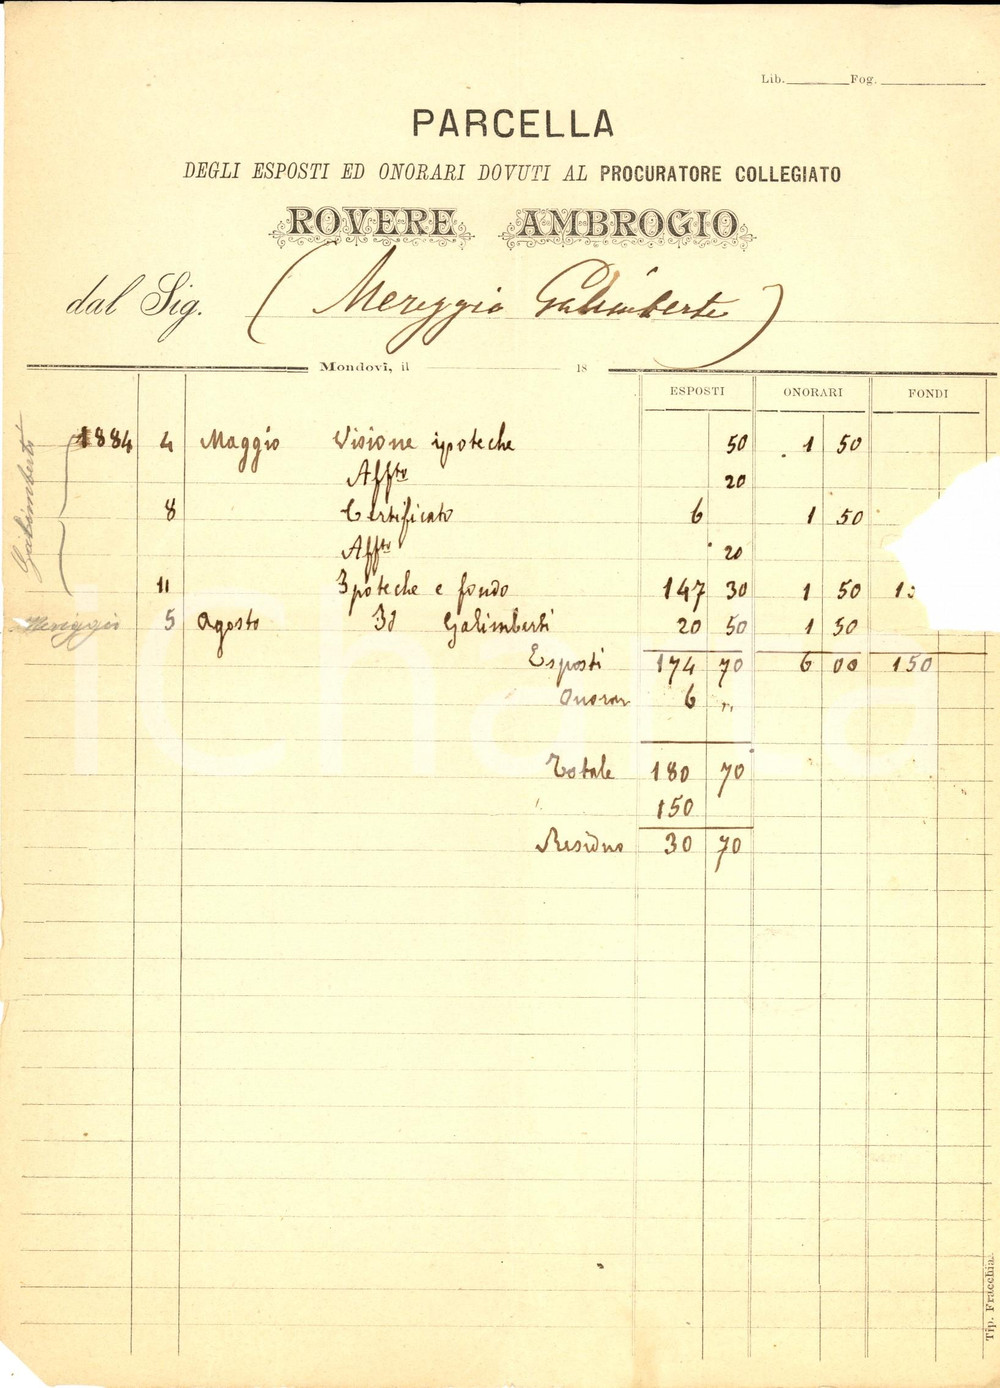 Lib. Fog.
PARCELLA
DEGLI ESPOSTI ED ONORARI DOVUTI AL PROCURATORE COLLEGIATO
ROVERE AMBROGIO
dal Sig. (Mereggio Galimberti)
Mondovì, il 18
ESPOSTI ONORARI FONDI
Galimberti
1884 4 Maggio Visione ipoteche 50 1 50
Affto 20
8 Certificato 6 1 50
Affto 20
11 Ipoteche e fondo 147 30 1 50 15
Mereggio 5 Agosto Id Galimberti 20 50 1 50
Esposti 174 70 6 00 150
Onorar 6 "
Totale 180 70
150
Residuo 30 70
Tip. Fracchia.
iCharta